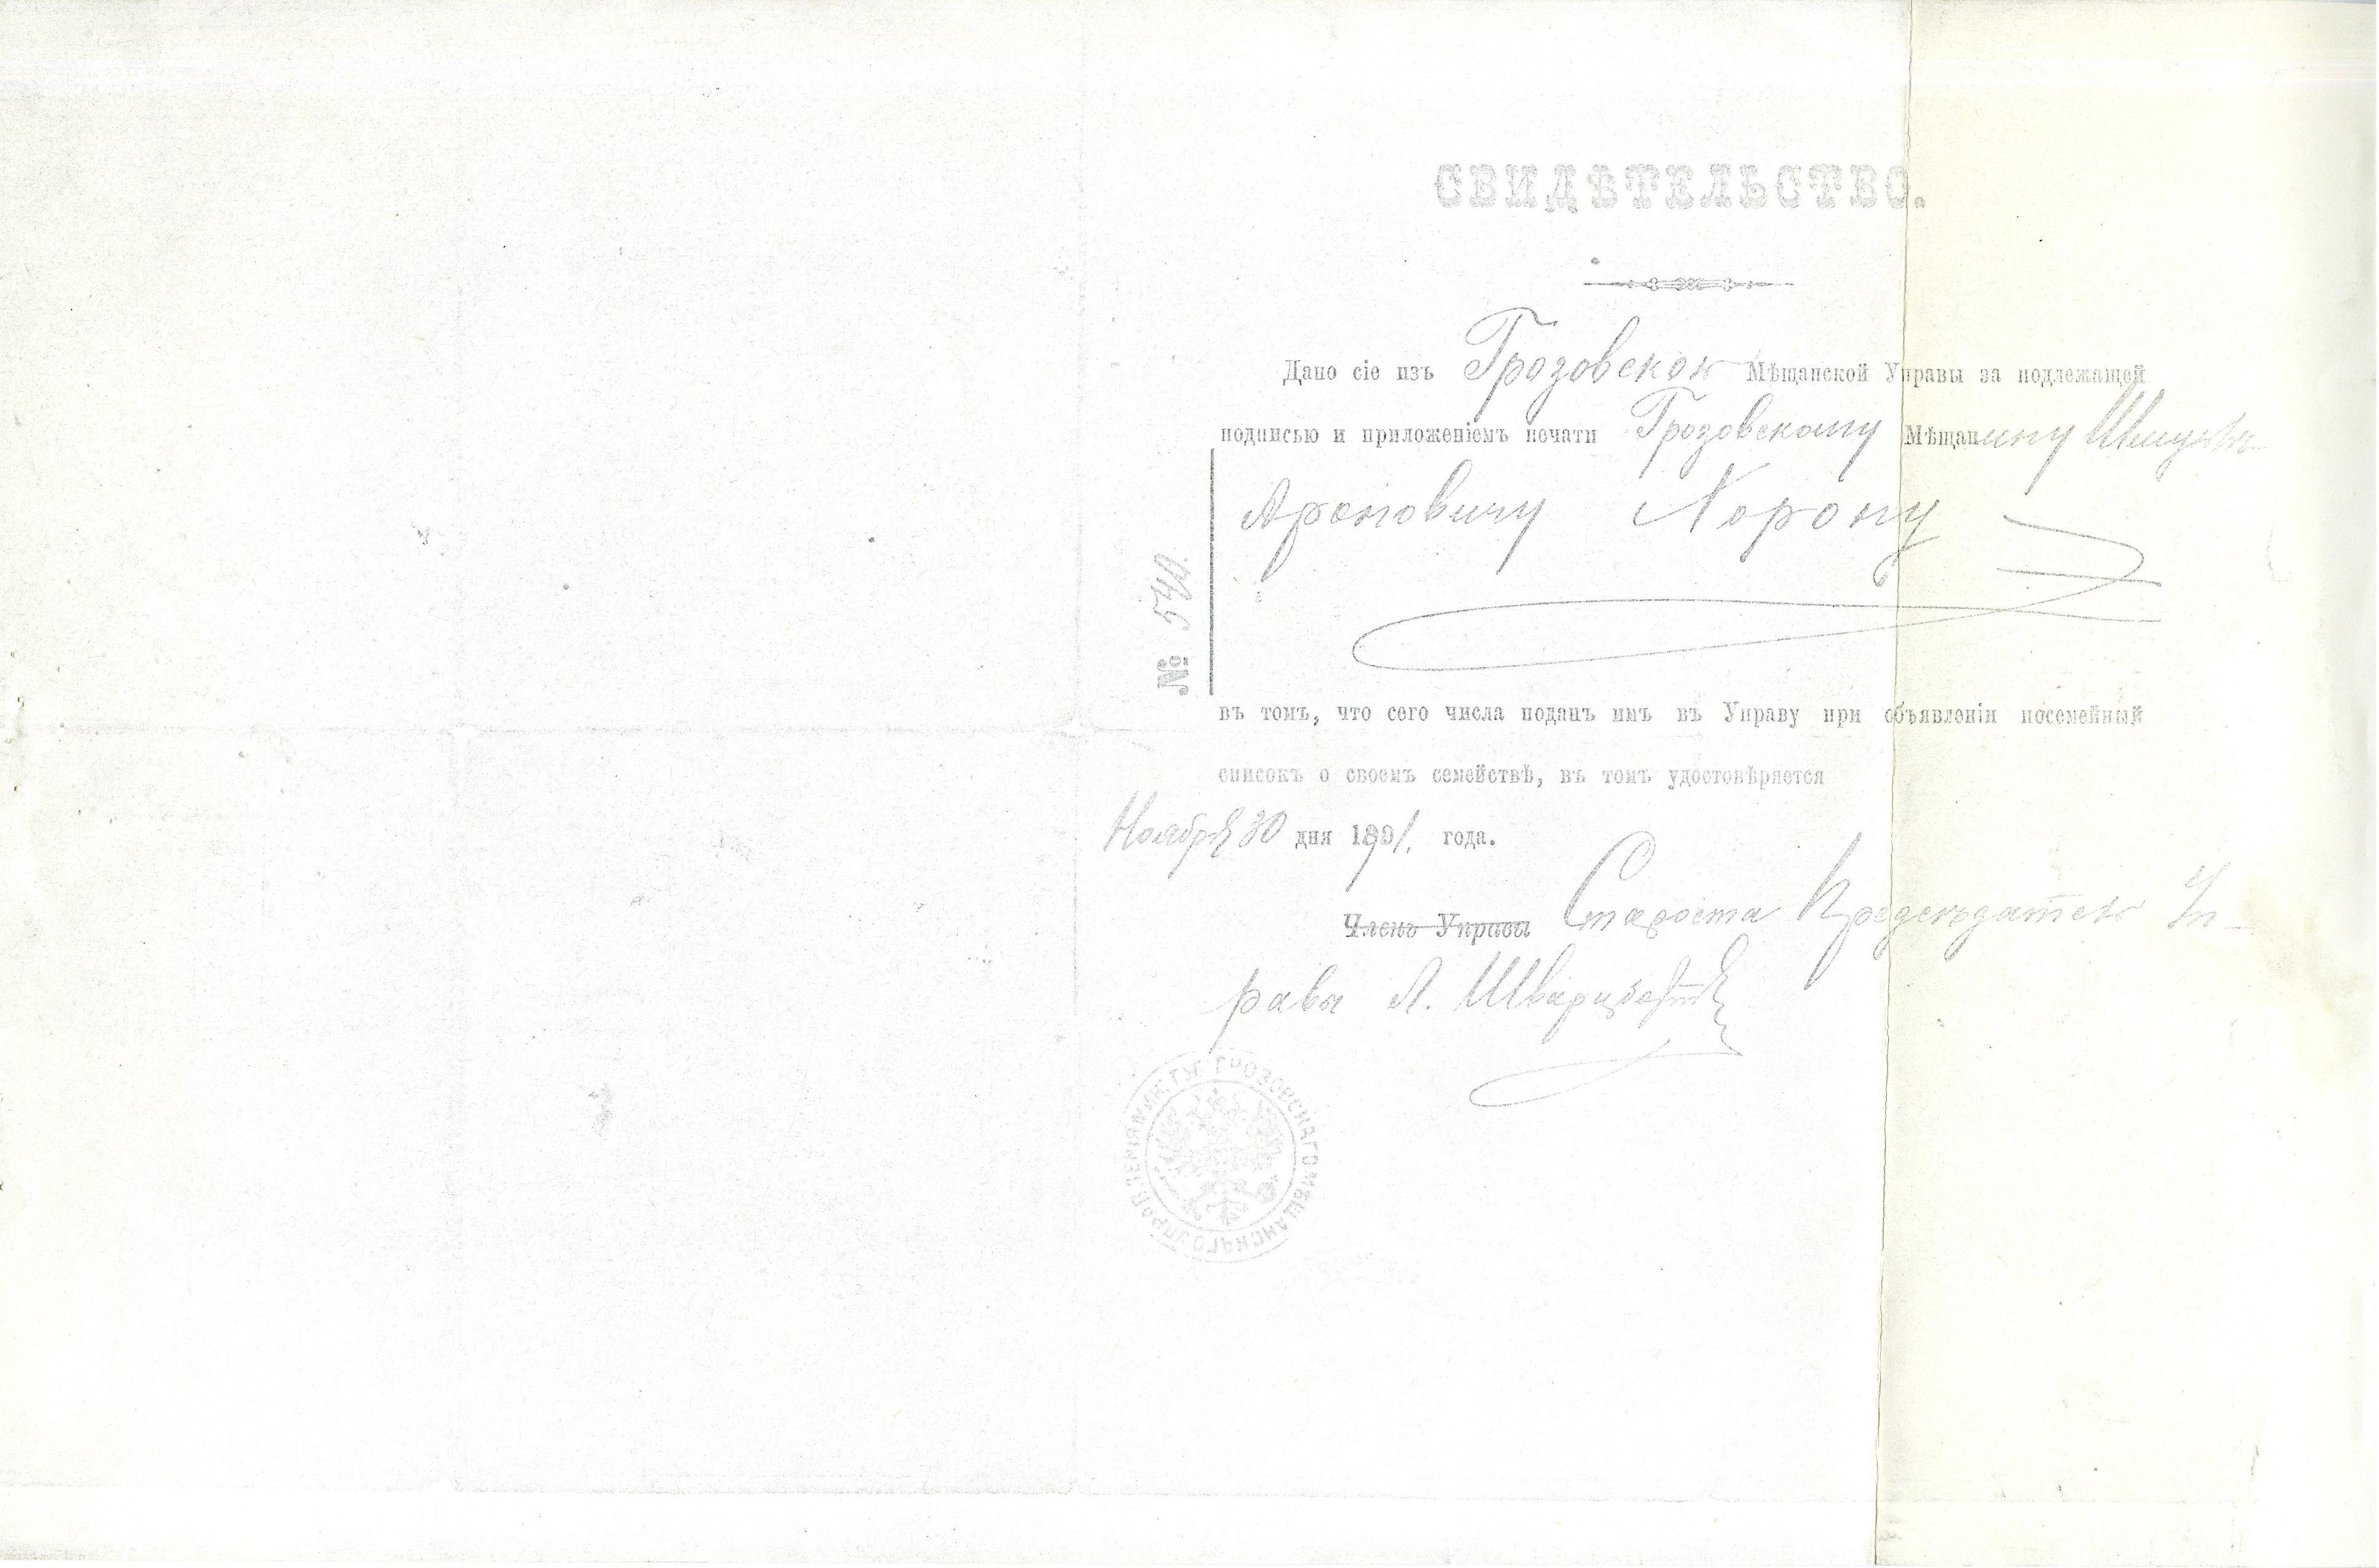 СВИДѢТЕЛЬСТВО.
Дано сіе изъ Грозовской Мѣщанской Управы за подлежащей
подписью и приложеніемъ печати Грозовскому Мѣщанину
Ароновичу Хорону
№ 540.
въ томъ, что сего числа поданъ имъ въ Управу при объявленіи посемейный
списокъ о своемъ семействѣ, въ томъ удостовѣряется
Ноября 30 дня 1891. года.
Членъ Управы Староста Председатель Уп-
рава А.
ГРОЗОВСКАГО МѢЩАНСКАГО УПРАВЛЕНІЯ МИН. ГУБ.